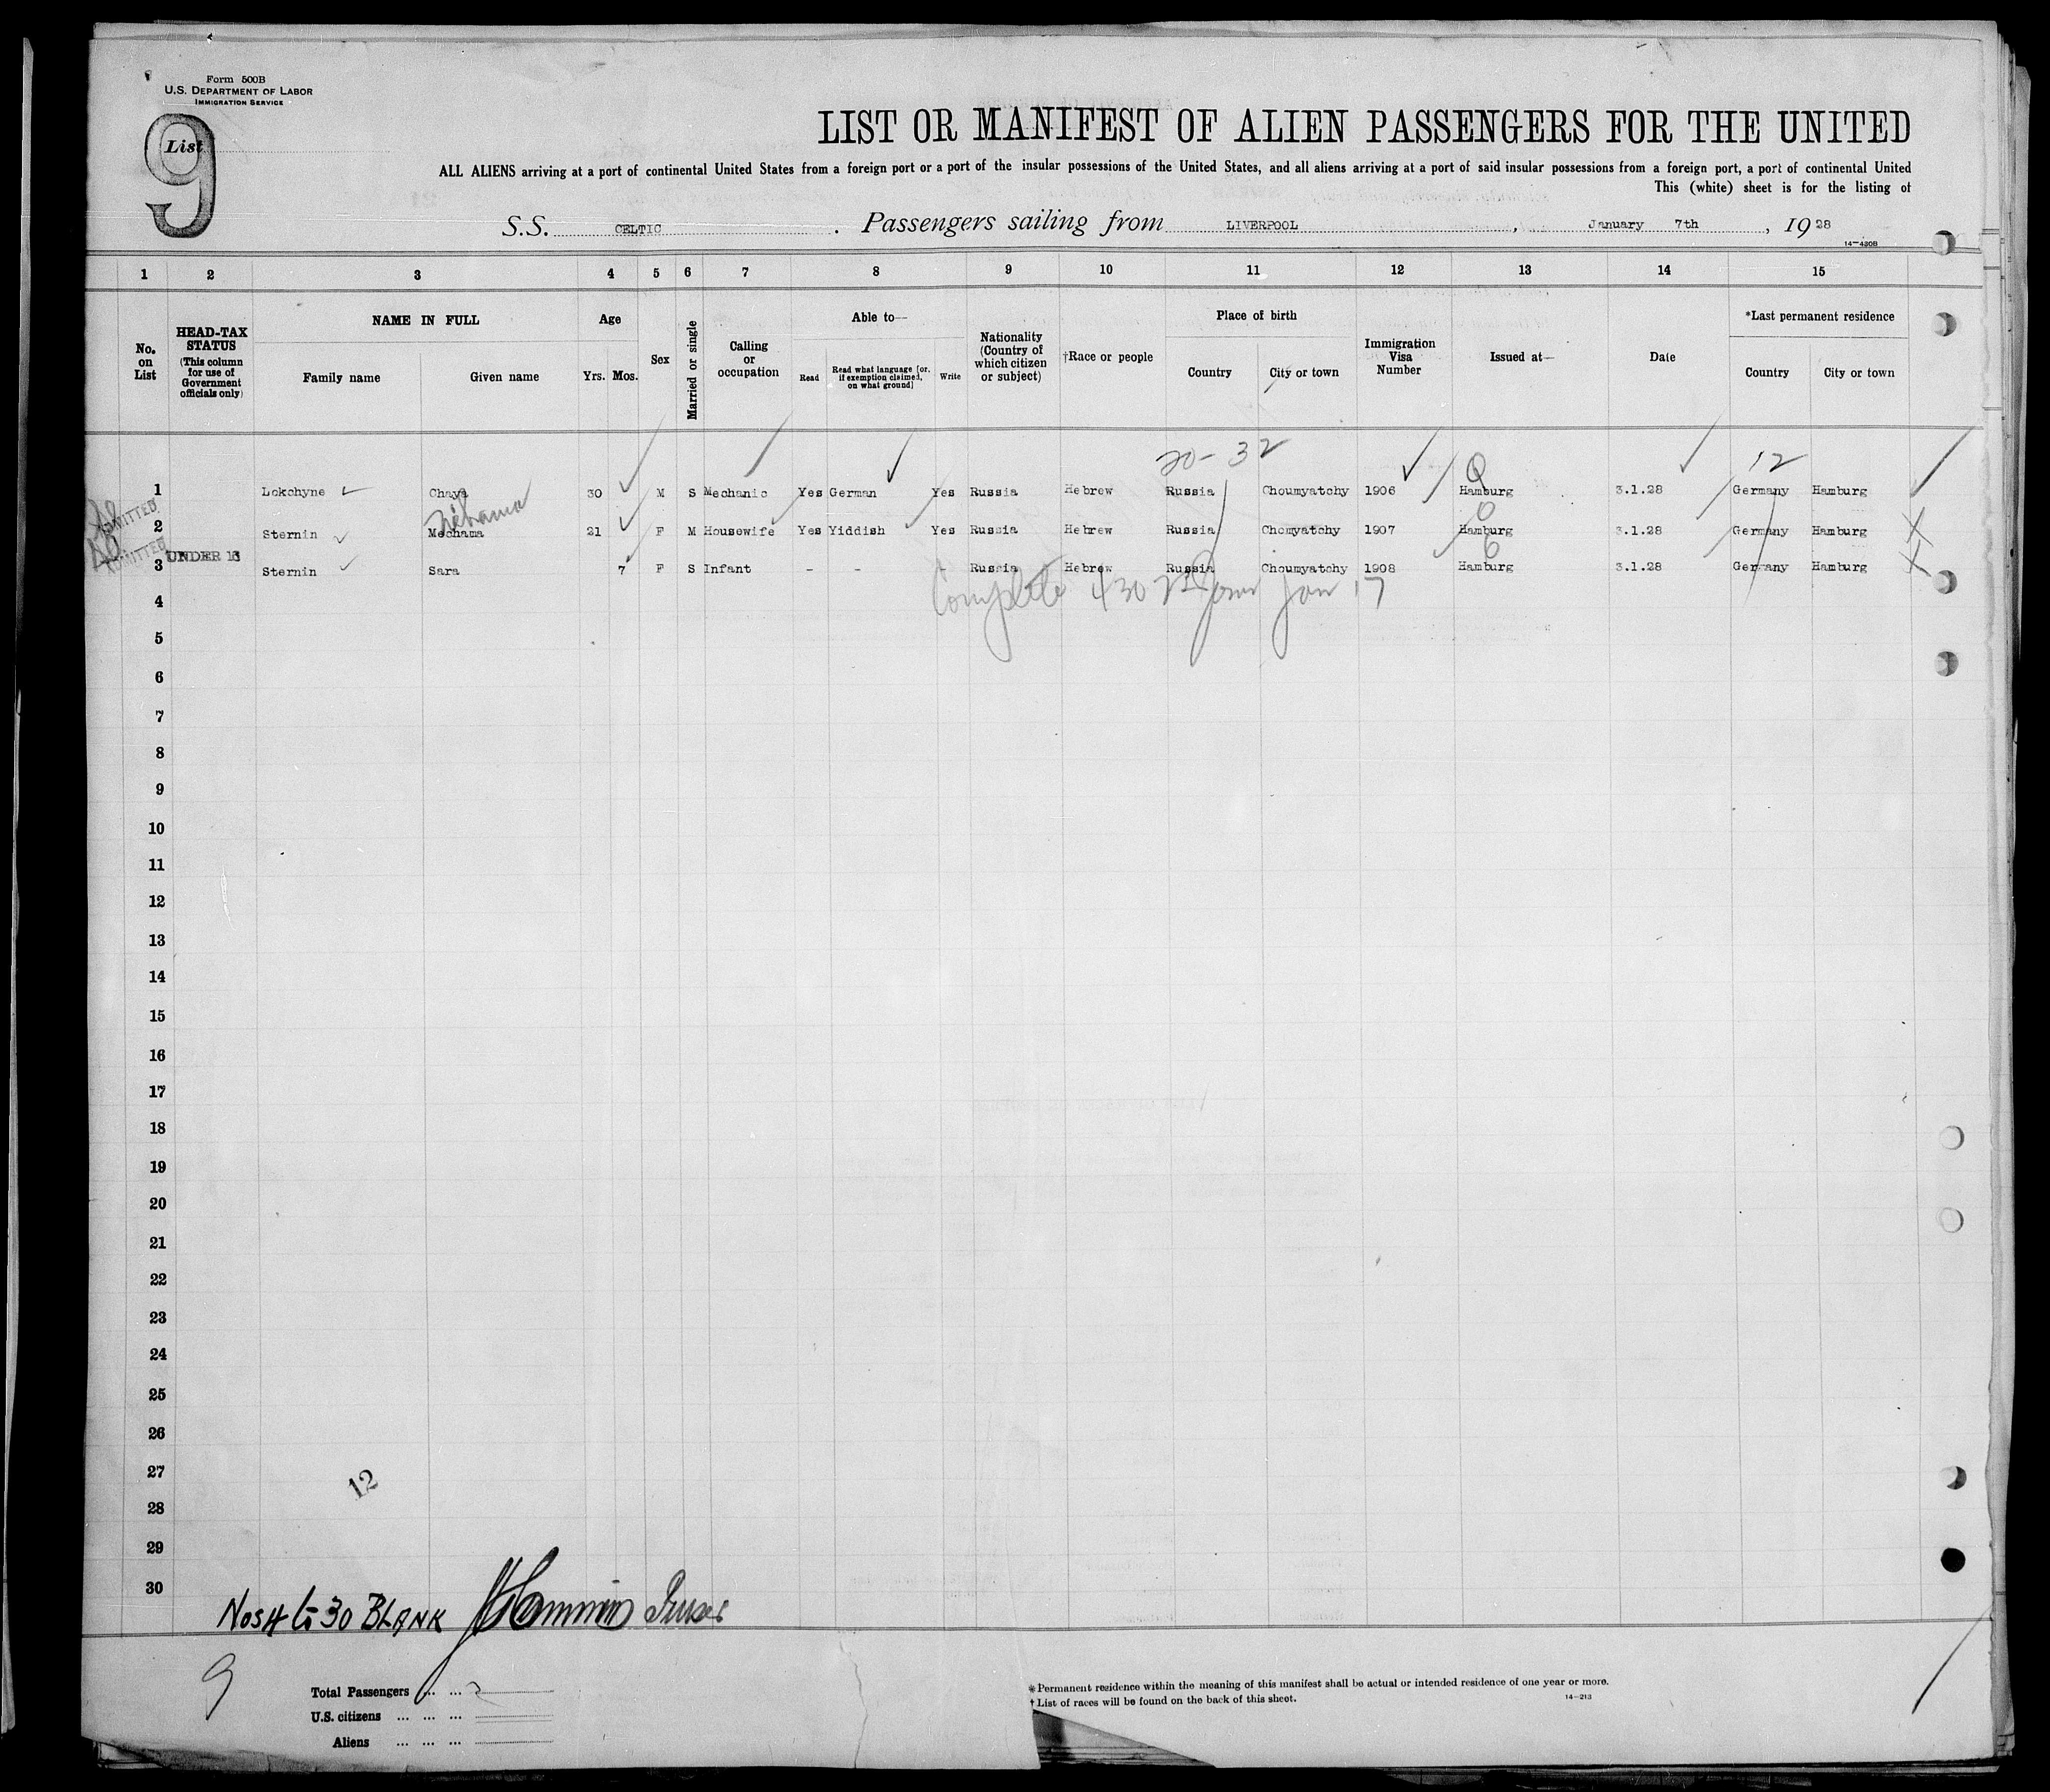 Form 500B
U.S. DEPARTMENT OF LABOR
IMMIGRATION SERVICE
List
9
LIST OR MANIFEST OF ALIEN PASSENGERS FOR THE UNITED
ALL ALIENS arriving at a port of continental United States from a foreign port or a port of the insular possessions of the United States, and all aliens arriving at a port of said insular possessions from a foreign port, a port of continental United
This (white) sheet is for the listing of
S.S. CELTIC . Passengers sailing from LIVERPOOL , January 7th , 19 28
14—430B
1 2 3 4 5 6 7 8 9 10 11 12 13 14 15
No. on List
HEAD-TAX STATUS (This column for use of Government officials only)
NAME IN FULL
Family name Given name
Age
Yrs. Mos.
Sex
Married or single
Calling or occupation
Able to—
Read
Read what language [or, if exemption claimed, on what ground]
Write
Nationality (Country of which citizen or subject)
†Race or people
Place of birth
Country City or town
Immigration Visa Number
Issued at—
Date
*Last permanent residence
Country City or town
20-32 12
1 Lokchyne Chaya 30 M S Mechanic Yes German Yes Russia Hebrew Russia Choumyatchy 1906 Hamburg 3.1.28 Germany Hamburg
ADMITTED
Nehama
2 Sternin Mechama 21 F M Housewife Yes Yiddish Yes Russia Hebrew Russia Chomyatchy 1907 Hamburg 3.1.28 Germany Hamburg
ADMITTED UNDER 16
3 Sternin Sara 7 F S Infant - - - Russia Hebrew Russia Choumyatchy 1908 Hamburg 3.1.28 Germany Hamburg
Complete 430 Jan 17
4
5
6
7
8
9
10
11
12
13
14
15
16
17
18
19
20
21
22
23
24
25
26
27
12
28
29
30
NOS 4 to 30 BLANK Purser
9
Total Passengers ... ...
U.S. citizens ... ... ...
Aliens ... ... ...
*Permanent residence within the meaning of this manifest shall be actual or intended residence of one year or more.
†List of races will be found on the back of this sheet.
14—213